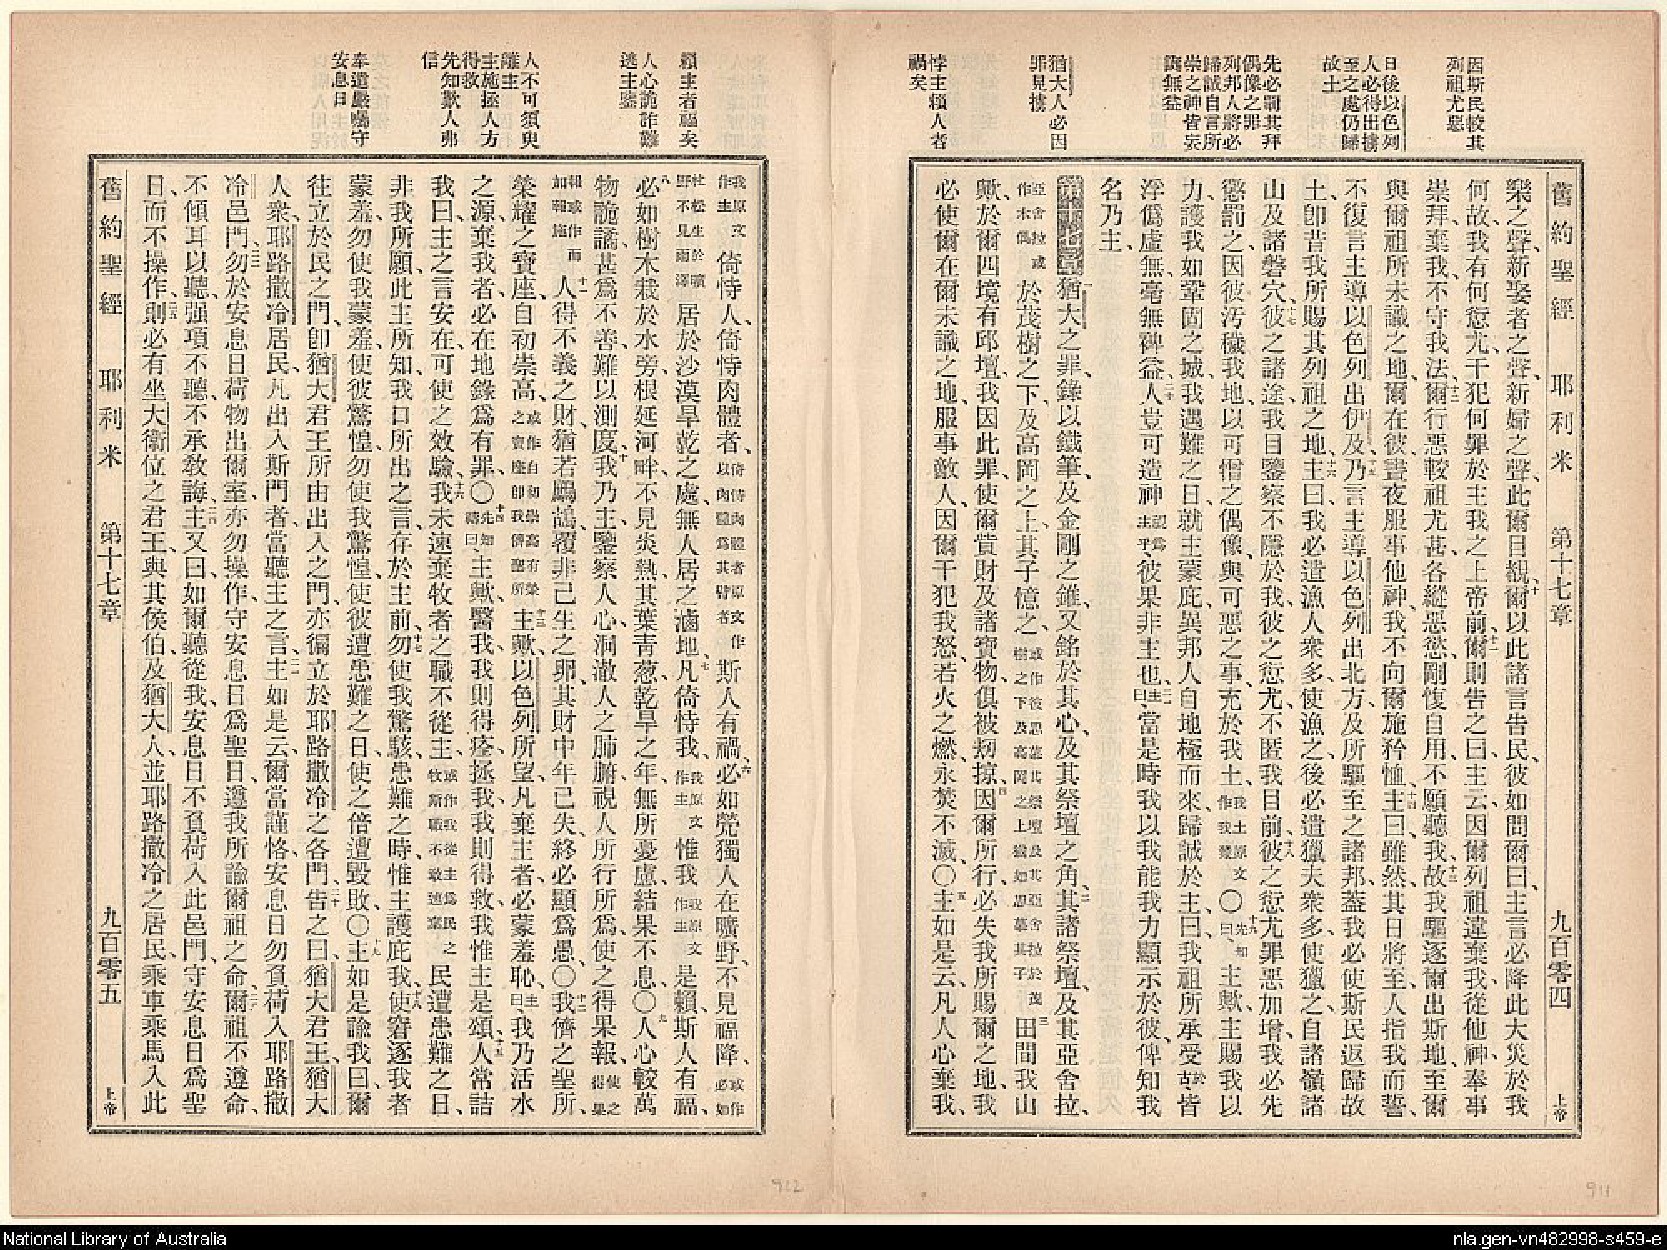 因斯民較其
列祖尤惡
日後以色列
人必得出擄
至之處仍歸
故土
先必罰其拜
偶像之罪
列邦人將必
歸誠自言所
崇之神皆妄
與無益
猶大人必因
罪見擄
悖主賴人者
禍矣
舊約聖經 耶利米 第十七章 九百零四 上帝
樂之聲、新娶者之聲、新婦之聲、此爾目覩、十爾以此諸言告民、彼如問爾曰、主言必降此大災於我
何故、我有何愆尤、干犯何罪於主我之上帝前、十一爾則告之曰、主云、因爾列祖違棄我、從他神、奉事
崇拜、棄我不守我法、十二爾行惡較祖尤甚、各縱惡慾、剛愎自用、不願聽我、十三故我驅逐爾出斯地、至爾
與爾祖所未識之地、爾在彼晝夜服事他神、我不向爾施矜恤、十四主曰、雖然、其日將至、人指我而誓、
不復言主導以色列出伊及、十五乃言主導以色列出北方、及所驅至之諸邦、蓋我必使斯民返歸故
土、卽昔我所賜其列祖之地、十六主曰、我必遣漁人衆多使漁之、後必遣獵夫衆多使獵之、自諸嶺諸
山及諸磐穴、十七彼之諸途、我目鑒察、不隱於我、彼之愆尤、不匿我目前、十八彼之愆尤罪惡加增、我必先
懲罰之、因彼汚穢我地、以可憎之偶像、與可惡之事、充於我土、我土原文作我業〇十九先知曰、主歟、主賜我以
力、護我如鞏固之城、我遇難之日、就主蒙庇、異邦人自地極而來、歸誠於主、曰、我祖所承受於古皆
浮僞虛無、毫無裨益、二十人豈可造神視爲主乎彼果非主也、二一主曰、當是時我以我能我力顯示於彼、俾知我
名乃主、
第十七章一猶大之罪、錄以鐵筆、及金剛之錐、又銘於其心、及其祭壇之角、二其諸祭壇、及其亞舍拉、
亞舍拉或作木偶於茂樹之下、及高岡之上、其子憶之、或作彼思慕其祭壇及其亞舍拉於茂樹之下及高岡之上猶如思慕其子三田間我山
歟、於爾四境有邱壇、我因此罪、使爾貲財及諸寶物、俱被刼掠、四因爾所行、必失我所賜爾之地、我
必使爾在爾未識之地、服事敵人、因爾干犯我怒、若火之燃、永焚不滅、〇五主如是云、凡人心棄我、
賴主者福矣
人心詭詐難
逃主鑒
人不可須臾
離主
主施拯人方
得救
先知歎人弗
信
奉遣嚴囑守
安息日
我原文作主倚恃人、倚恃肉體者、倚恃肉體者原文作以肉體爲其臂者斯人有禍、六必如煢獨人在曠野、不見福降、或作必如
杜松生於曠野不見雨澤居於沙漠旱乾之處、無人居之滷地、七凡倚恃我、我原文作主惟我我原文作主是賴、斯人有福、
八必如樹木栽於水旁、根延河畔、不見炎熱、其葉靑葱、乾旱之年、無所憂慮、結果不息、〇九人心較萬
物詭譎、甚爲不善、難以測度、十我乃主、鑒察人心、洞澈人之肺腑、視人所行所爲、使之得果報、使之得果
報或作而如報施十一人得不義之財、猶若鷓鴣覆非己生之卵、其財中年已失、終必顯爲愚、〇十二我儕之聖所、
榮耀之寶座、自初崇高、或作自初崇高有榮之寶座卽我儕聖所十三主歟、以色列所望、凡棄主者、必蒙羞恥、主曰、我乃活水
之源、棄我者、必在地錄爲有罪、〇十四先知禱曰、主歟、醫我、我則得痊、拯我、我則得救、我惟主是頌、十五人常詰
我曰、主之言安在、可使之效驗、十六我未速棄牧者之職不從主、或作我從主爲民之牧斯職不敢速棄民遭患難之日、
非我所願、此主所知、我口所出之言、存於主前、十七勿使我驚駭、患難之時、惟主護庇我、十八使窘逐我者
蒙羞、勿使我蒙羞、使彼驚惶、勿使我驚惶、使彼遭患難之日、使之倍遭毀敗、〇十九主如是諭我曰、爾
往立於民之門、卽猶大君王所由出入之門、亦徧立於耶路撒冷之各門、二十告之曰、猶大君王、猶大
人衆、耶路撒冷居民、凡出入斯門者、當聽主之言、二一主如是云、爾當謹恪、安息日勿負荷入耶路撒
冷邑門、二二勿於安息日荷物出爾室、亦勿操作、守安息日爲聖日、遵我所諭爾祖之命、二三爾祖不遵命、
不傾耳以聽、强項不聽、不承敎誨、二四主又曰、如爾聽從我、安息日不負荷入此邑門、守安息日爲聖
日、而不操作、二五則必有坐大衞位之君王、與其侯伯、及猶大人、並耶路撒冷之居民、乘車乘馬入此
舊約聖經 耶利米 第十七章 九百零五 上帝
912
911
National Library of Australia
nla.gen-vn482998-s459-e